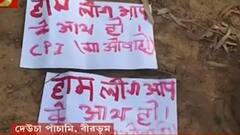 हाम लोग आप
के साथ हाै।
CPI (माओवादी)
हाम लोग आप
के साथ हाै।
দেউচা পাচামি, বীরভূম